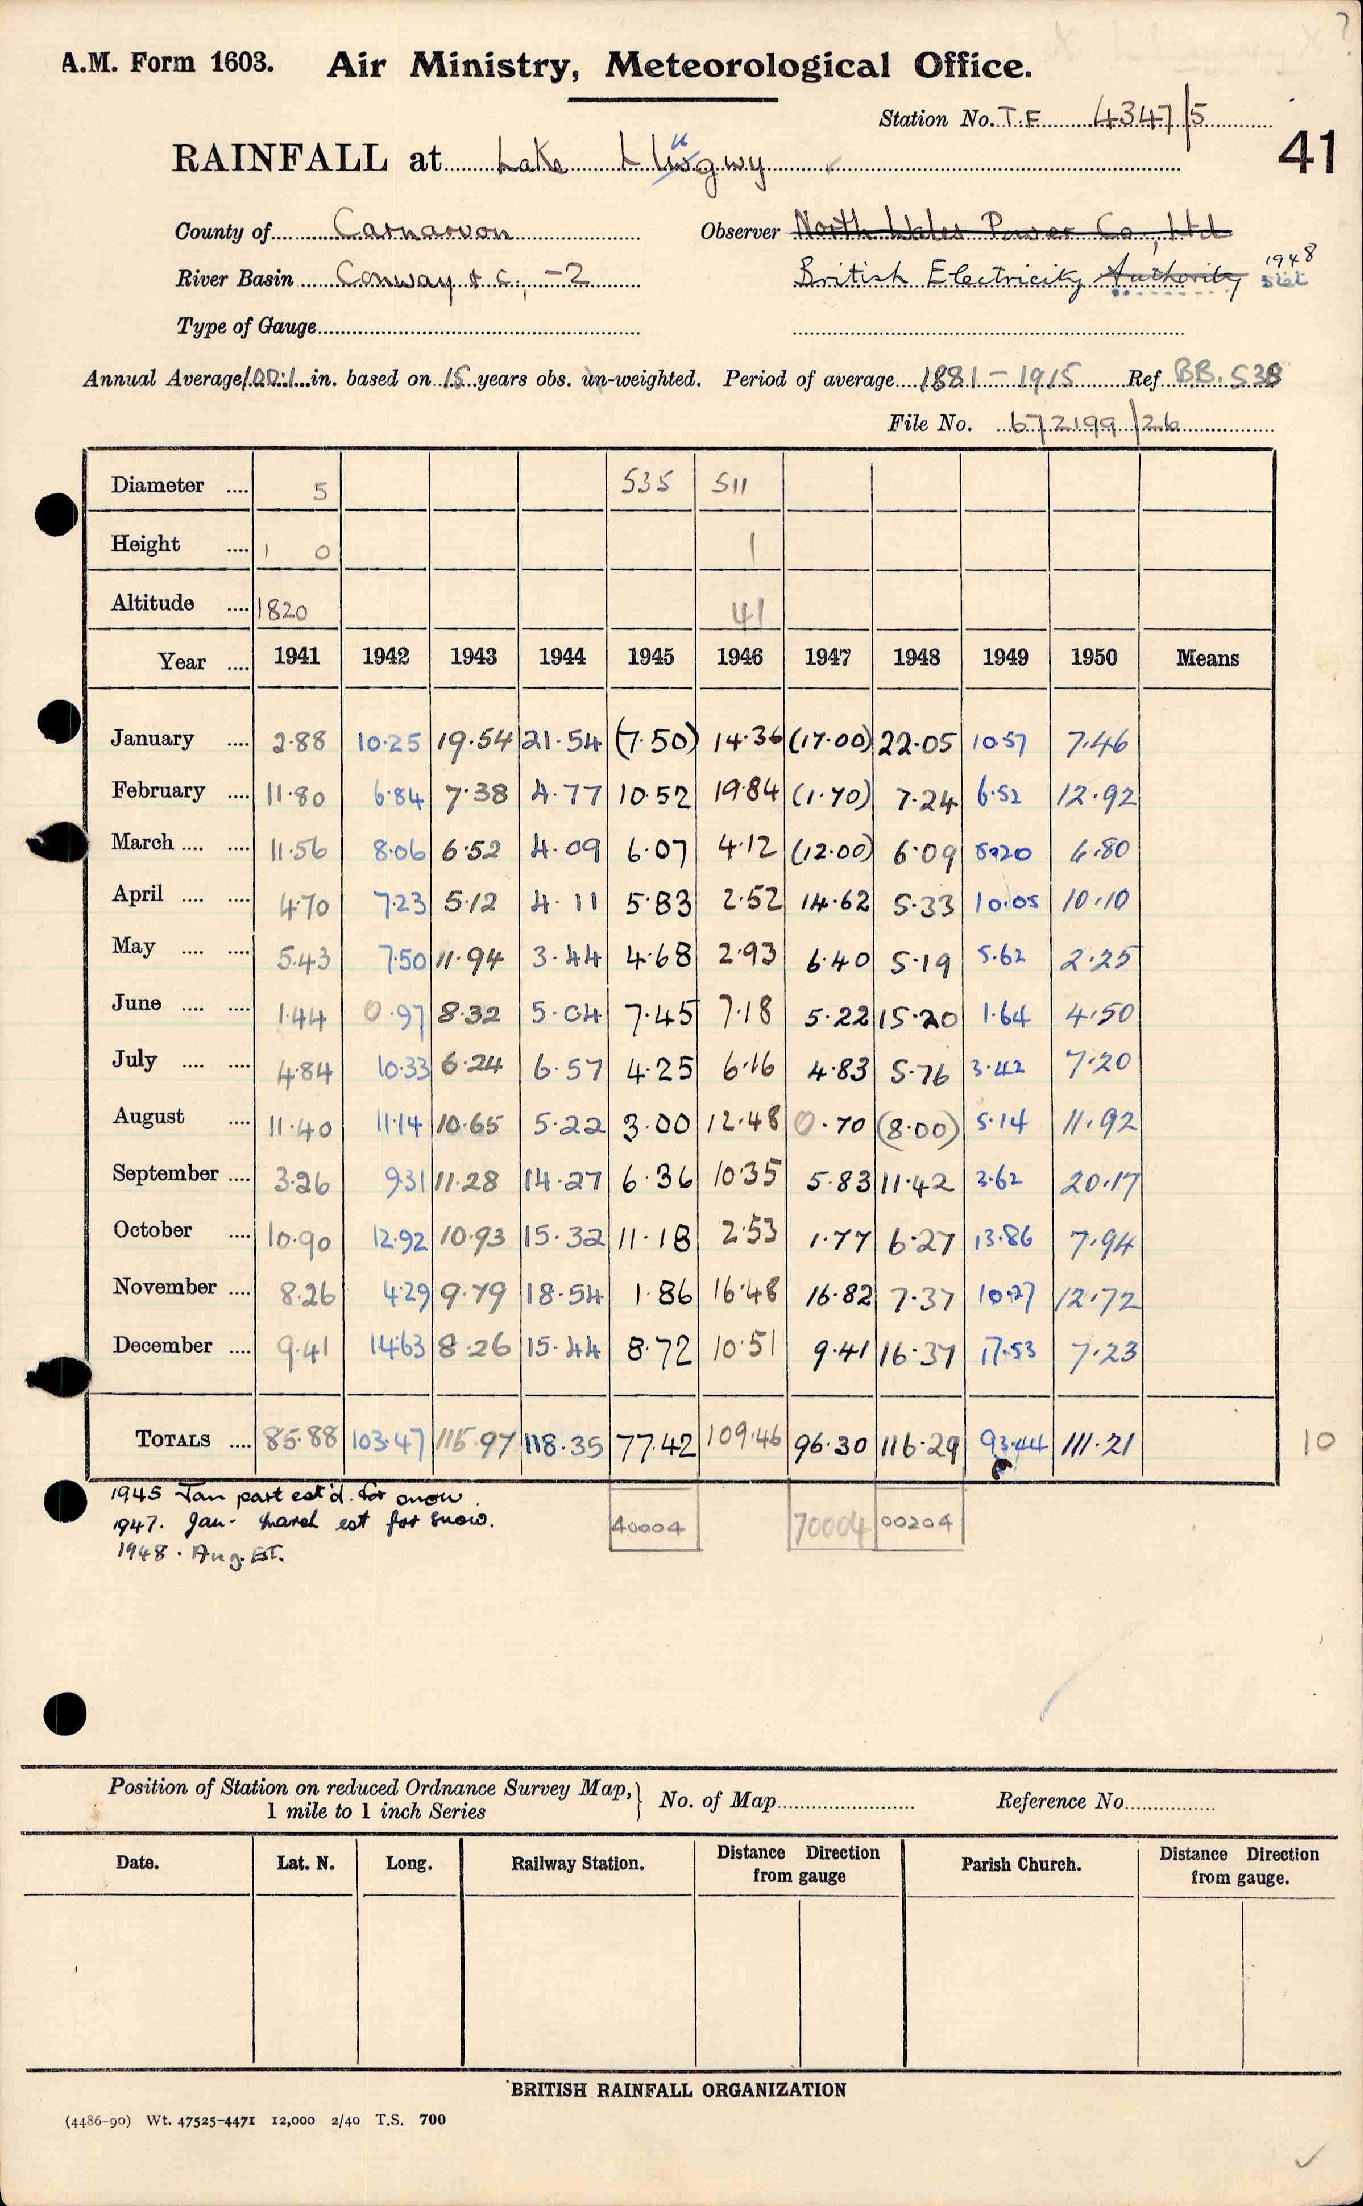 A.M. Form 1603. Air Ministry, Meteorological Office.
Station No. T.F 4347/5
RAINFALL at Lake Llugwy
41
County of Carnarvon Observer North Wales Power Co., Ltd
River Basin Conway & c, -2 British Electricity Authority 1948 stet
Type of Gauge
Annual Average 100.1 in. based on 15 years obs. un-weighted. Period of average 1881-1915 Ref BB. 53B
File No. 672199/26
Diameter .... 5 535 511
Height .... 1 0 1
Altitude .... 1820 41
Year .... 1941 1942 1943 1944 1945 1946 1947 1948 1949 1950 Means
January .... 2.88 10.25 19.54 21.54 (7.50) 14.36 (17.00) 22.05 10.57 7.46
February .... 11.80 6.84 7.38 4.77 10.52 19.84 (1.70) 7.24 6.52 12.92
March .... .... 11.56 8.06 6.52 4.09 6.07 4.12 (12.00) 6.09 5.20 6.80
April .... .... 4.70 7.23 5.12 4.11 5.83 2.52 14.62 5.33 10.05 10.10
May .... .... 5.43 7.50 11.94 3.44 4.68 2.93 6.40 5.19 5.62 2.25
June .... .... 1.44 0.97 8.32 5.04 7.45 7.18 5.22 15.20 1.64 4.50
July .... .... 4.84 10.33 6.24 6.57 4.25 6.16 4.83 5.76 3.42 7.20
August .... 11.40 11.14 10.65 5.22 3.00 12.48 0.70 (8.00) 5.14 11.92
September .... 3.26 9.31 11.28 14.27 6.36 10.35 5.83 11.42 3.62 20.17
October .... 10.90 12.92 10.93 15.32 11.18 2.53 1.77 6.27 13.86 7.94
November .... 8.26 4.29 9.79 18.54 1.86 16.48 16.82 7.37 10.27 12.72
December .... 9.41 14.63 8.26 15.44 8.72 10.51 9.41 16.37 17.53 7.23
TOTALS .... 85.88 103.47 115.97 118.35 77.42 109.46 96.30 116.29 93.44 111.21 10
1945 Jan part est'd. for snow.
1947. Jan- March est for snow.
1948. Aug. EST.
40004 70004 00204
Position of Station on reduced Ordnance Survey Map,
1 mile to 1 inch Series
No. of Map Reference No
Date. Lat. N. Long. Railway Station. Distance Direction from gauge Parish Church. Distance Direction from gauge.
BRITISH RAINFALL ORGANIZATION
(4486-90) Wt. 47525-4471 12,000 2/40 T.S. 700